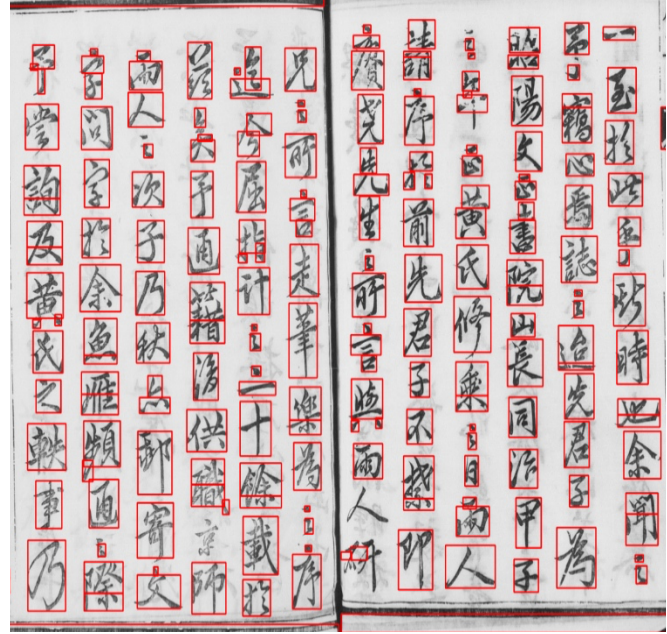 一至於此斯時也余聞之
竊心焉誌之迨先君子為
昭陽文正書院山長同治甲子
之年正黃氏修乘之日兩人
請序於前先君子不即
贊堯先生之所言與兩人
兄之所言走筆樂為之序
迄今屈指計之二十餘載於
茲矣予通籍後供職京師
兩人之次子乃秋亦郵寄文
字問字於余魚雁頻通之際
予嘗詢及黃氏之軼事乃